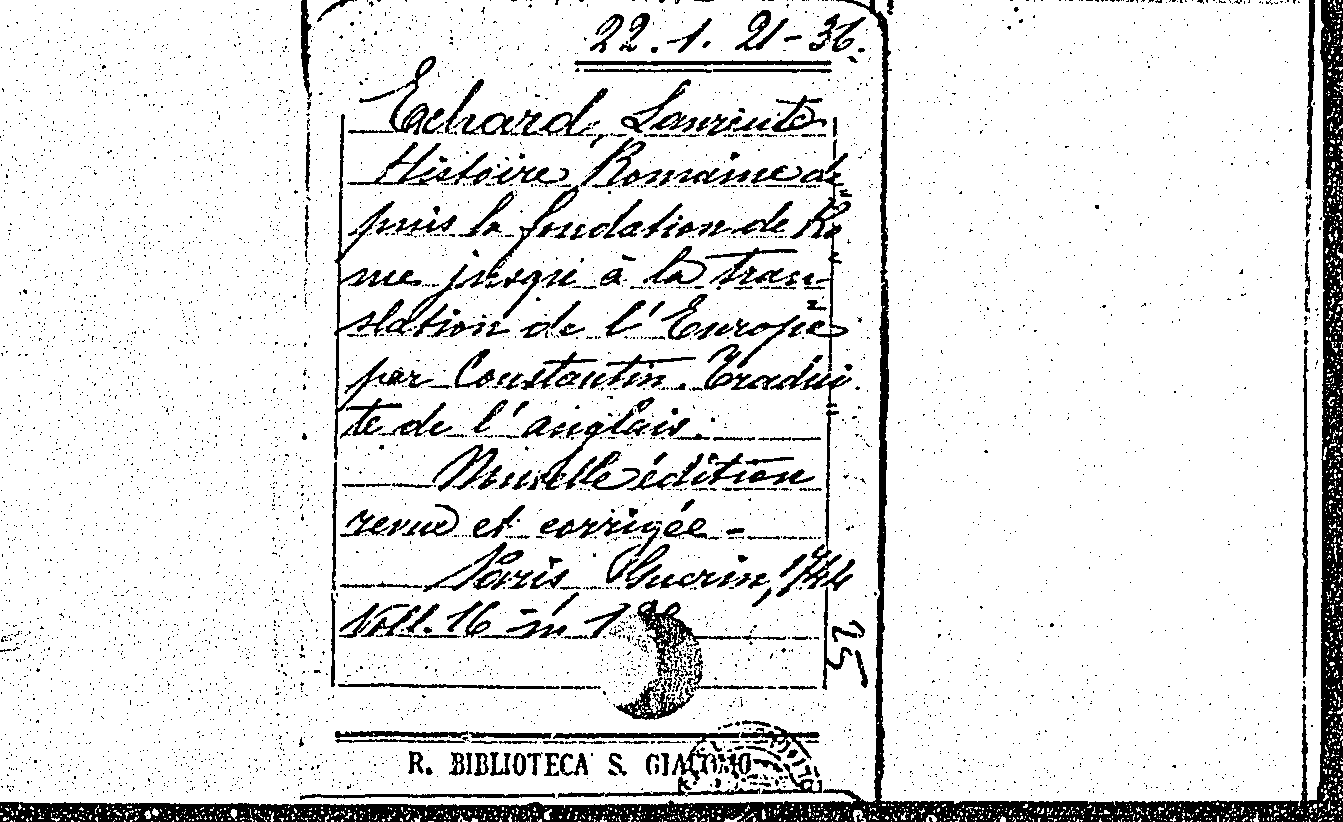 22.1. 21-36.
Echard, Laurent
Histoire Romaine de
puis la fondation de Ro
me jusqu'à la tran-
slation de l'Europe
par Constantin. Tradui
te de l'anglais.
Nouvelle édition
revue et corrigée -
Paris Guerin, 1744
Voll. 16 in
25
R. BIBLIOTECA S. GIACOMO